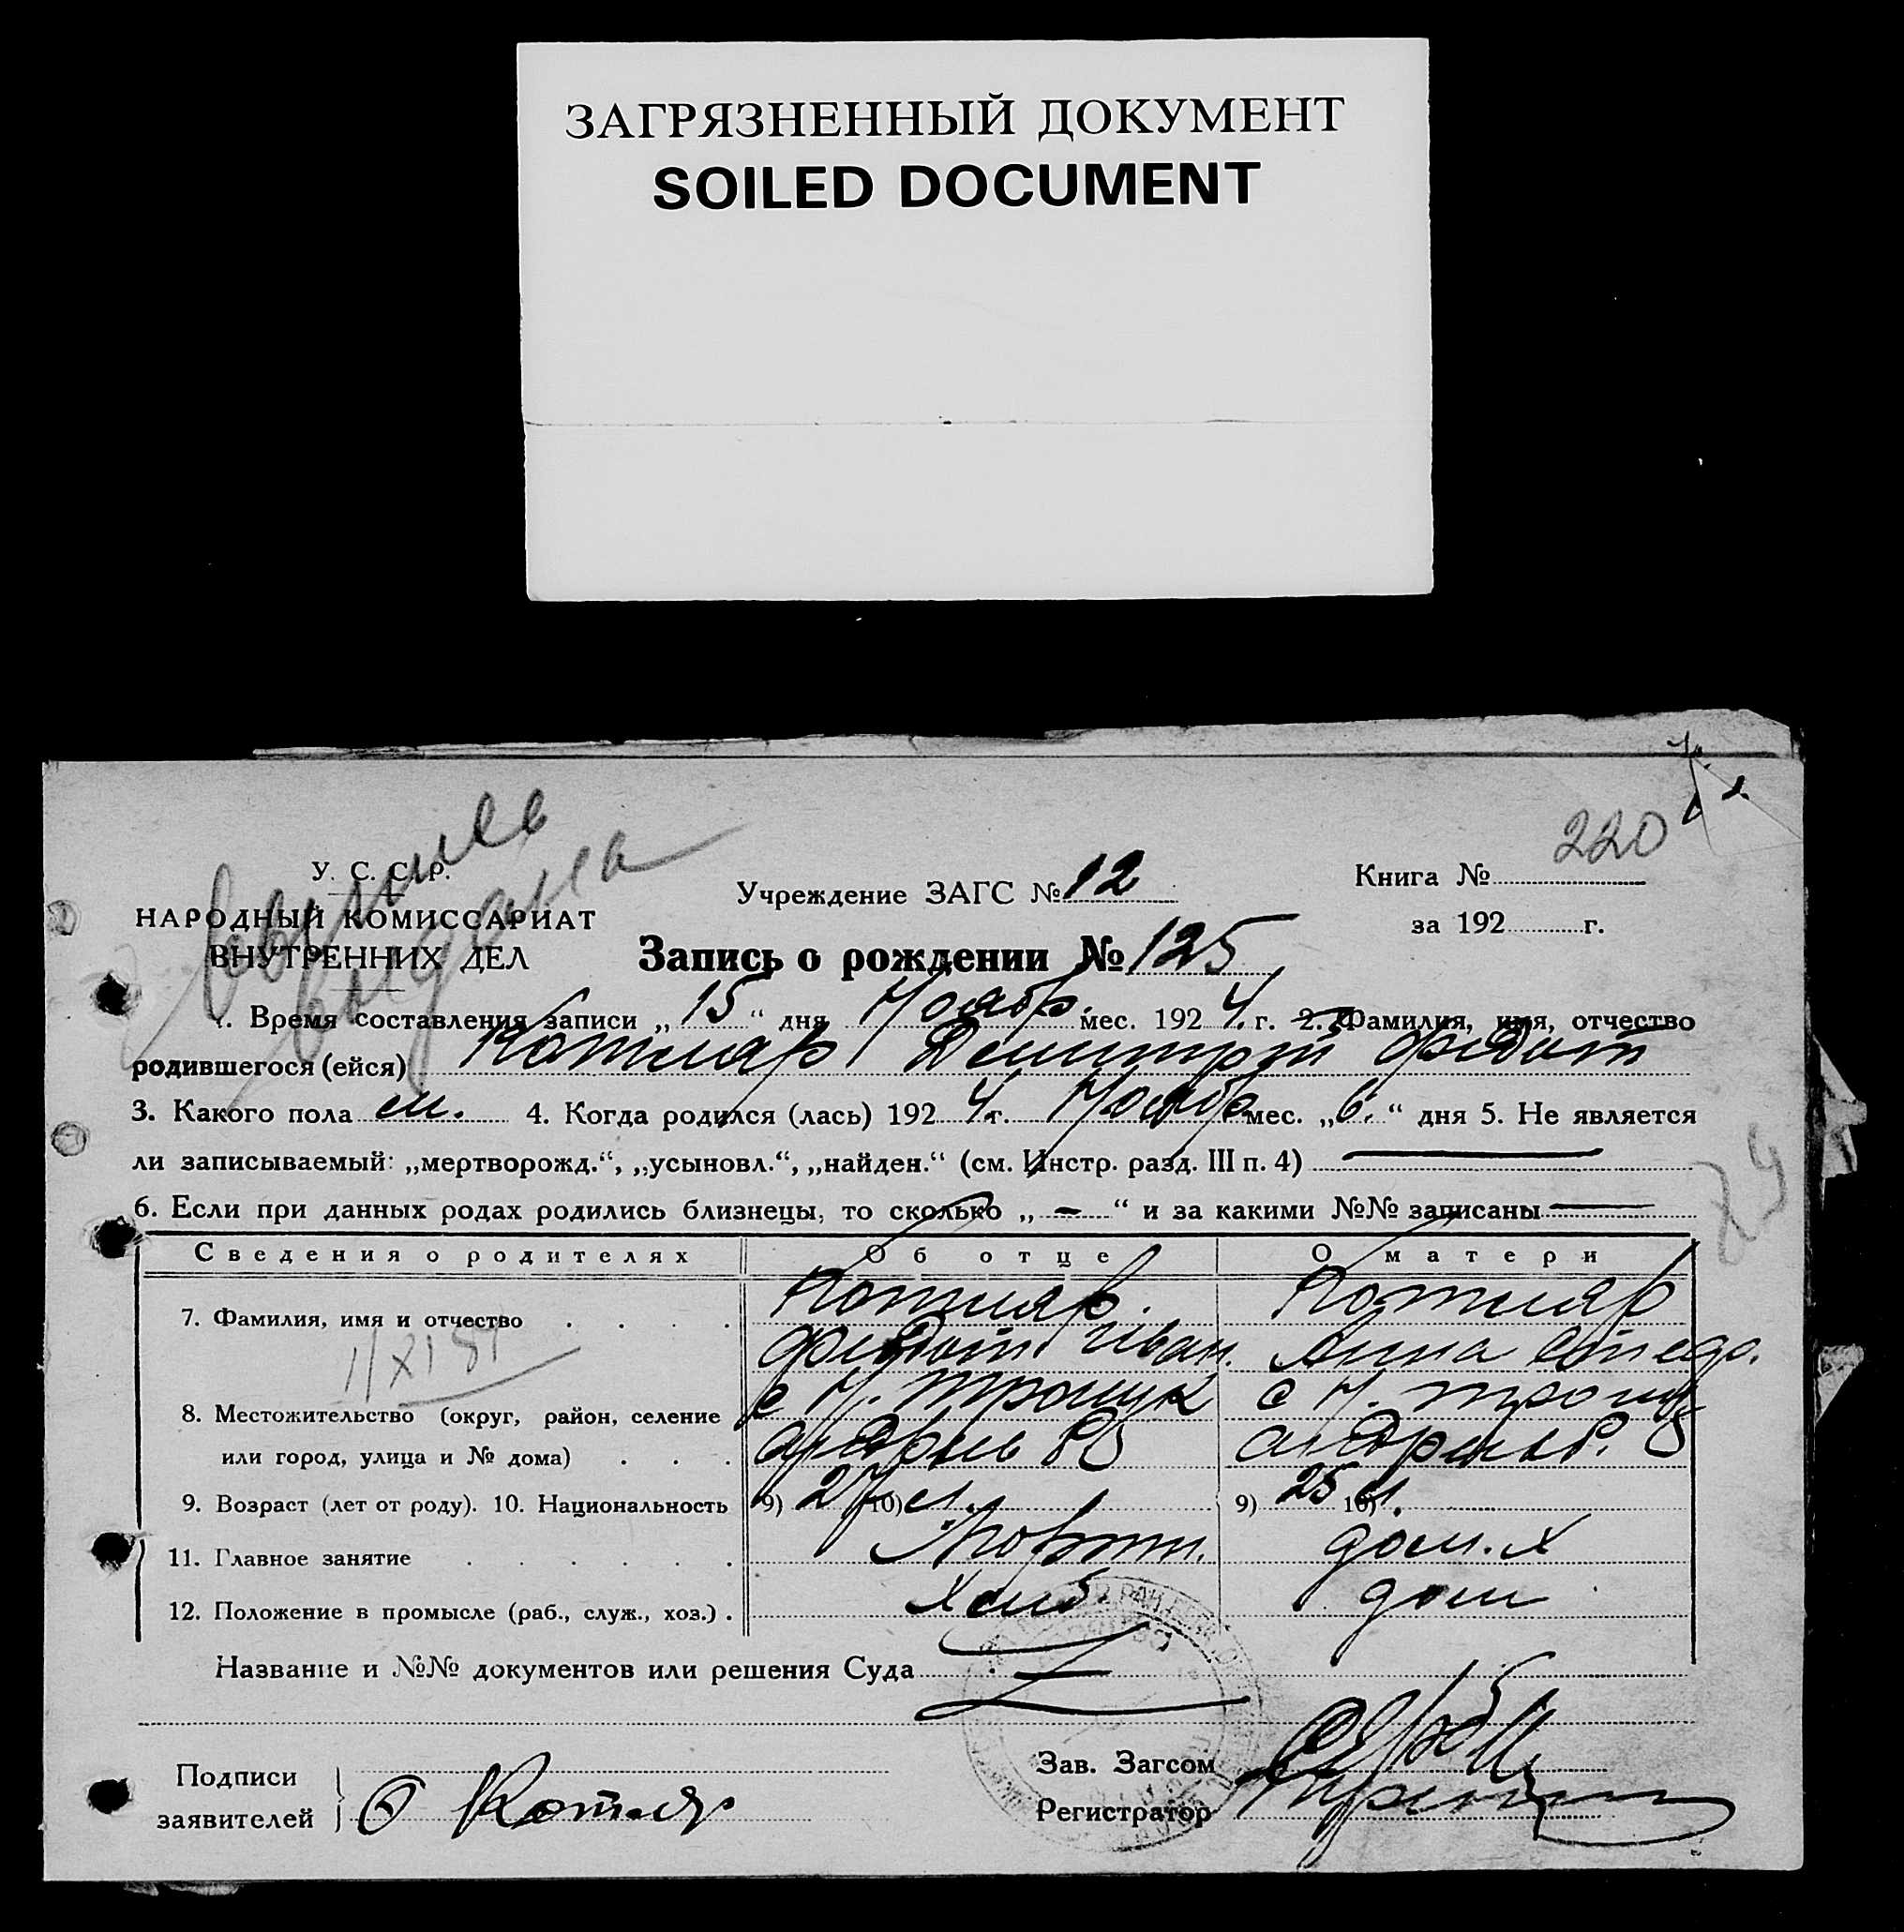 ЗАГРЯЗНЕННЫЙ ДОКУМЕНТ
SOILED DOCUMENT
220
У. С. С. Р.
НАРОДНЫЙ КОМИССАРИАТ
ВНУТРЕННИХ ДЕЛ
выдана
Учреждение ЗАГС № 12
Книга №
за 192 г.
Запись о рождении № 125
1. Время составления записи „ 15 “ дня Ноябр. мес. 192 4. г. 2. Фамилия, имя, отчество
родившегося (ейся) Котляр Демитрий Федот
3. Какого пола м. 4. Когда родился (лась) 192 4. г. Ноябр мес. „ 6. “ дня 5. Не является
ли записываемый: „мертворожд.“, „усыновл.“, „найден.“ (см. Инстр. разд. III п. 4) —
6. Если при данных родах родились близнецы, то сколько „ – “ и за какими №№ записаны —
Сведения о родителях Об отце О матери
7. Фамилия, имя и отчество Котляр. Котляр
Федот Иван. Анна
8. Местожительство (округ, район, селение с Н. с Н.
или город, улица и № дома)
9. Возраст (лет от роду). 10. Национальность 9) 27 10) 9) 25 10)
11. Главное занятие дом. х
12. Положение в промысле (раб., служ., хоз.) . дом
Название и №№ документов или решения Суда —
Подписи
заявителей
Котляр
Зав. Загсом
Регистратор